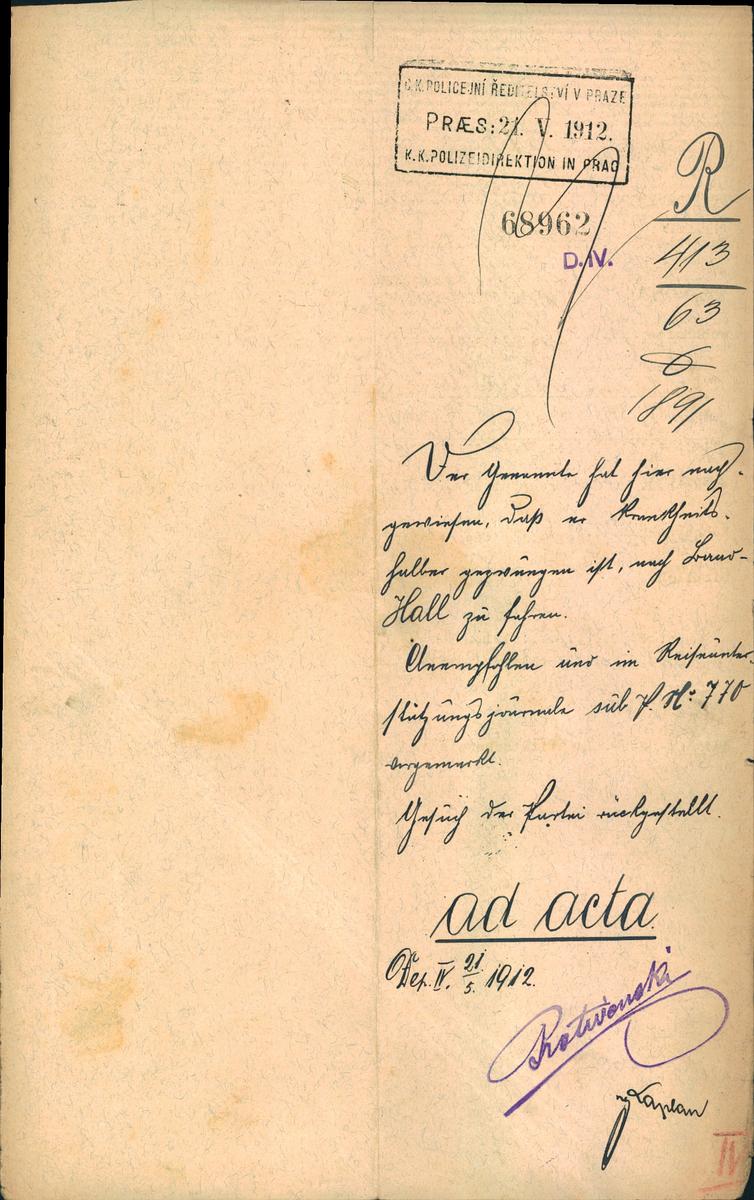 C.K. POLICEJNÍ ŘEDITELSTVÍ V PRAZE
PRÆS: 21. V. 1912.
K.K. POLIZEIDIREKTION IN PRAG
68962
D. IV.
R
413
63
1891
Der Genannte hat hier nach-
gewiesen, daß er krankheits-
halber gezwungen ist, nach Baad-
Hall zu fahren.
Anempfohlen und im Reiseunter-
stützungsjournale sub P. No 770
vorgemerkt.
Gesuch der Partei rückgestellt.
ad acta
Dep. IV. 21/5. 1912.
Kaplan
IV